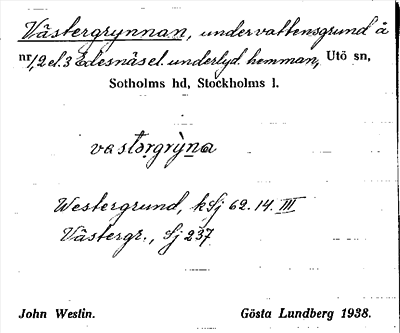 Västergrynnan, undervattensgrund å
nr 1, 2 el. 3 Edesnäs el. underlyd. hemman, Utö sn,
Sotholms hd, Stockholms l.
vastərgrỳna
Westergrund, kSj 62. 14. III
Västergr., Sj 237
John Westin. Gösta Lundberg 1938.